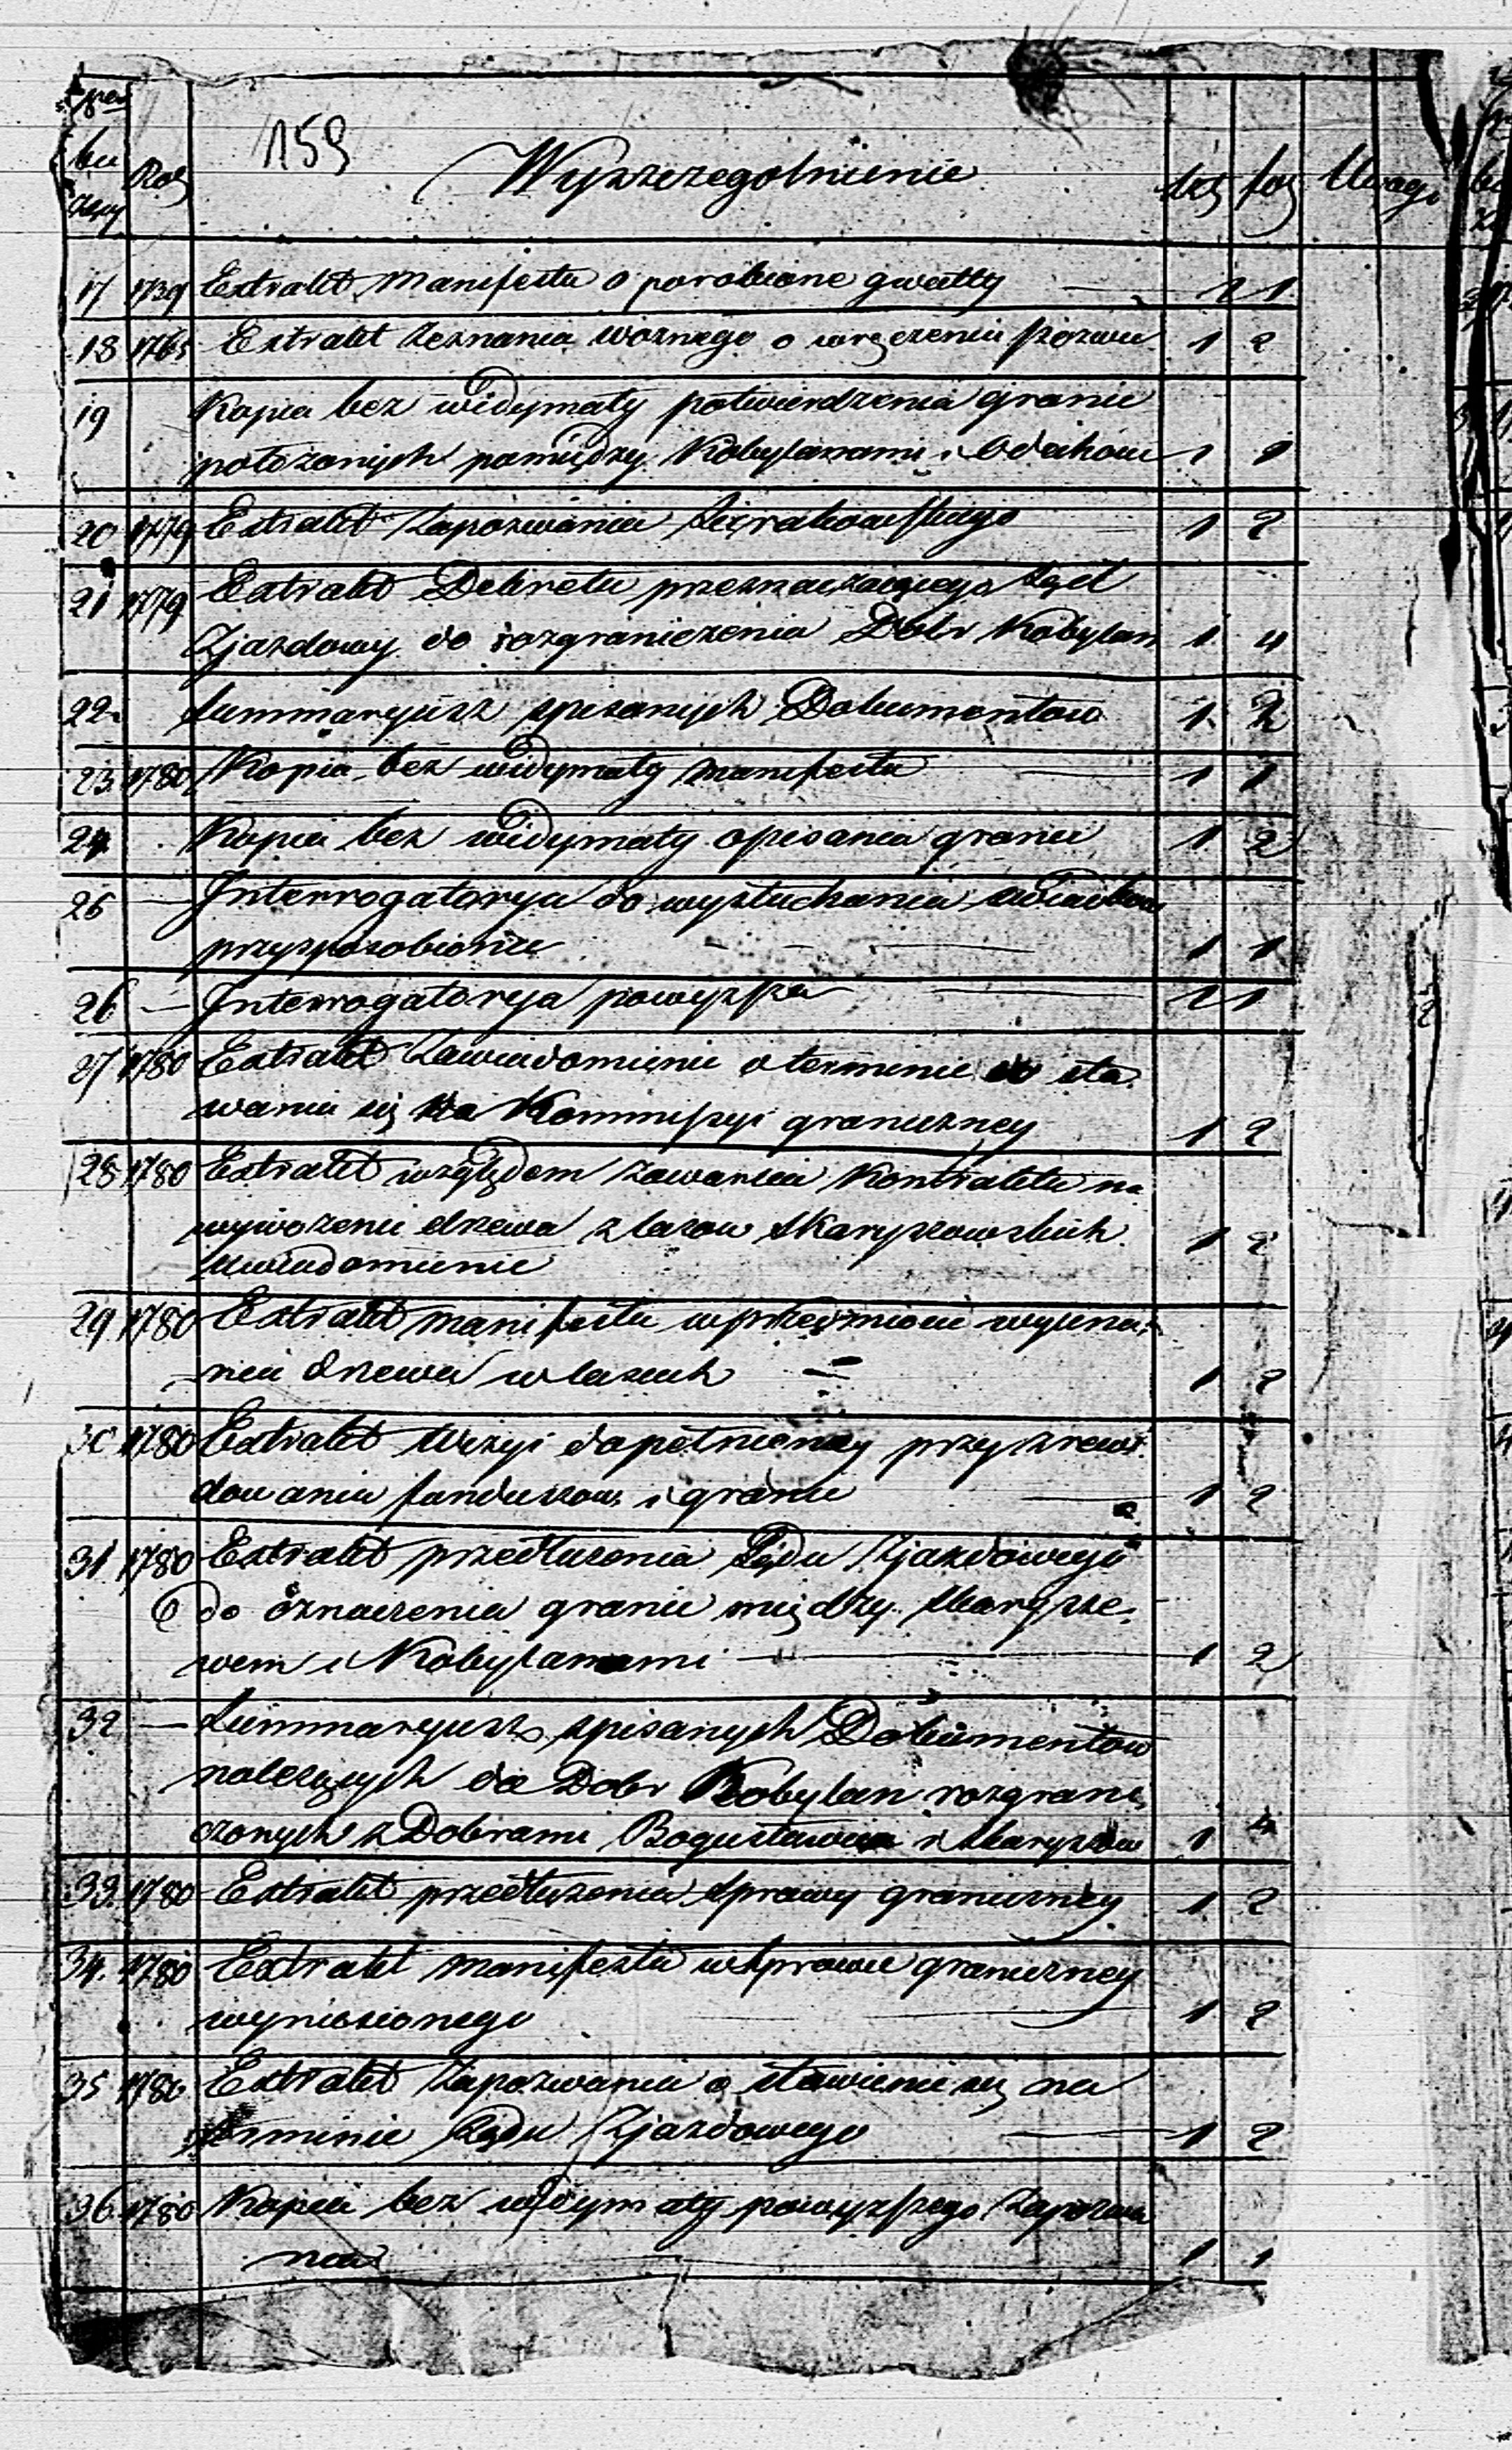 159
Rok Wyszczegolnienie Uwagi
17 1739 Extrakt Manifestu o porobione gwałty 1 1
18 1765 Extrakt Zeznania woznego o wręczeniu Pozwu 1 2
19 Kopia bez widymaty potwierdzenia granic
położonych pomiędzy Kobylanami i 1 1
20 1779 Extrakt Zapozwania 1 2
21 1779 Extrakt Dekretu przeznaczaiącego Sąd
Zjazdowy do rozgraniczenia Dobr Kobylan 1 4
22. Summaryusz spisanych Dokumentow 1 2
23. 1780 Kopia bez widymaty manifestu 1 1
24 Kopia bez widymaty opisania granic 1 2
25 — Interrogatorya do wysłuchania swiadkow
przysposobione 1 1
26 — Interrogatorya powyzsza 1 1
27 1780 Extrakt Zawiadomienia o terminie do sta
wania się na Kommissyi graniczney 1 2
28 1780 Extrakt względem zawarcia Kontraktu na
wywozenie drzewa z lasow Skaryszowskich 1 2
Uwiadomienie
29 1780 Extrakt manifestu w przedmiocie wycina-
nia drzewa w lasach 1 2
30 1780 Extrakt Wizyi dopełnioney przy zrewi-
dowaniu funduszow i granic 1 2
31 1780 Extrakt przedłuzenia Sądu Zjazdowego
do oznaczenia granic między Skarysze-
wem i Kobylanami 1 2
32 — Summaryusz spisanych Dokumentow
nalezących do Dobr Kobylan rozgrani-
czonych z Dobrami Bogusławice i Skaryszew 1 4
33. 1780 Extrakt przedłuzenia Sprawy graniczney 1 2
34. 1780 Extrakt manifestu w Sprawie graniczney
wyniesionego 1 2
35 1780 Extrakt Zapozwania o stawienie się na
terminie Sądu Zjazdowego 1 2
36. 1780 Kopia bez widymaty powyzszego Zapozwa
nia 1 1